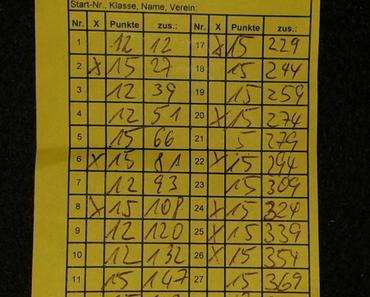 Start-Nr., Klasse, Name, Verein:
Nr. X Punkte zus.: Nr. X Punkte zus.:
1 12 12 17 X 15 229
2 X 15 27 18 15 244
3 12 39 19 15 259
4 12 51 20 X 15 274
5 15 66 21 5 279
6 X 15 81 22 X 15 294
7 12 93 23 15 309
8 X 15 108 24 X 15 324
9 12 120 25 X 15 339
10 12 132 26 X 15 354
11 15 147 27 15 369